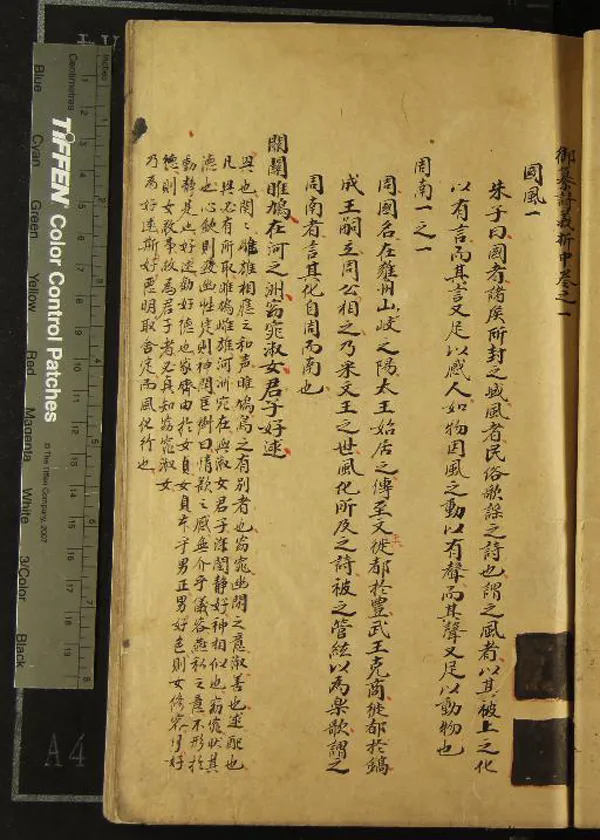 御纂詩義折中卷之一
國風一
朱子曰國者諸侯所封之域風者民俗歌謠之詩也謂之風者以其被上之化
以有言而其言又足以感人如物因風之動以有聲而其聲又足以動物也
周南一之一
周國名在雍州山岐之陽太王始居之傳至文王徙都於豐武王克商徙都於鎬
成王嗣立周公相之乃采文王之世風化所及之詩被之管絃以為樂歌謂之
周南者言其化自周而南也
關關雎鳩在河之洲窈窕淑女君子好逑
興也関〻雌雄相應之和声雎鳩鳥之有別者也窈窕幽閒之意淑善也逑配也
凡興必有所取雎鳩雌雄河洲定在興淑女君子深閨静好神相似也窈窕狀其
德也心欽則邃幽性定則神閒匡衡曰情歡之感無介乎儀容燕私之意不形於
動静是也好逑勖好德也家齊由於女貞女貞本于男正男好色則女修容男好
德則女敬事故為君子者必真知窈窕淑女
乃為好逑斯好惡明取舍定而風化行也
TIFFEN Color Control Patches
© The Tiffen Company, 2007
Centimetres
Inches
Blue
Cyan
Green
Yellow
Red
Magenta
White
3/Color
Black
A4